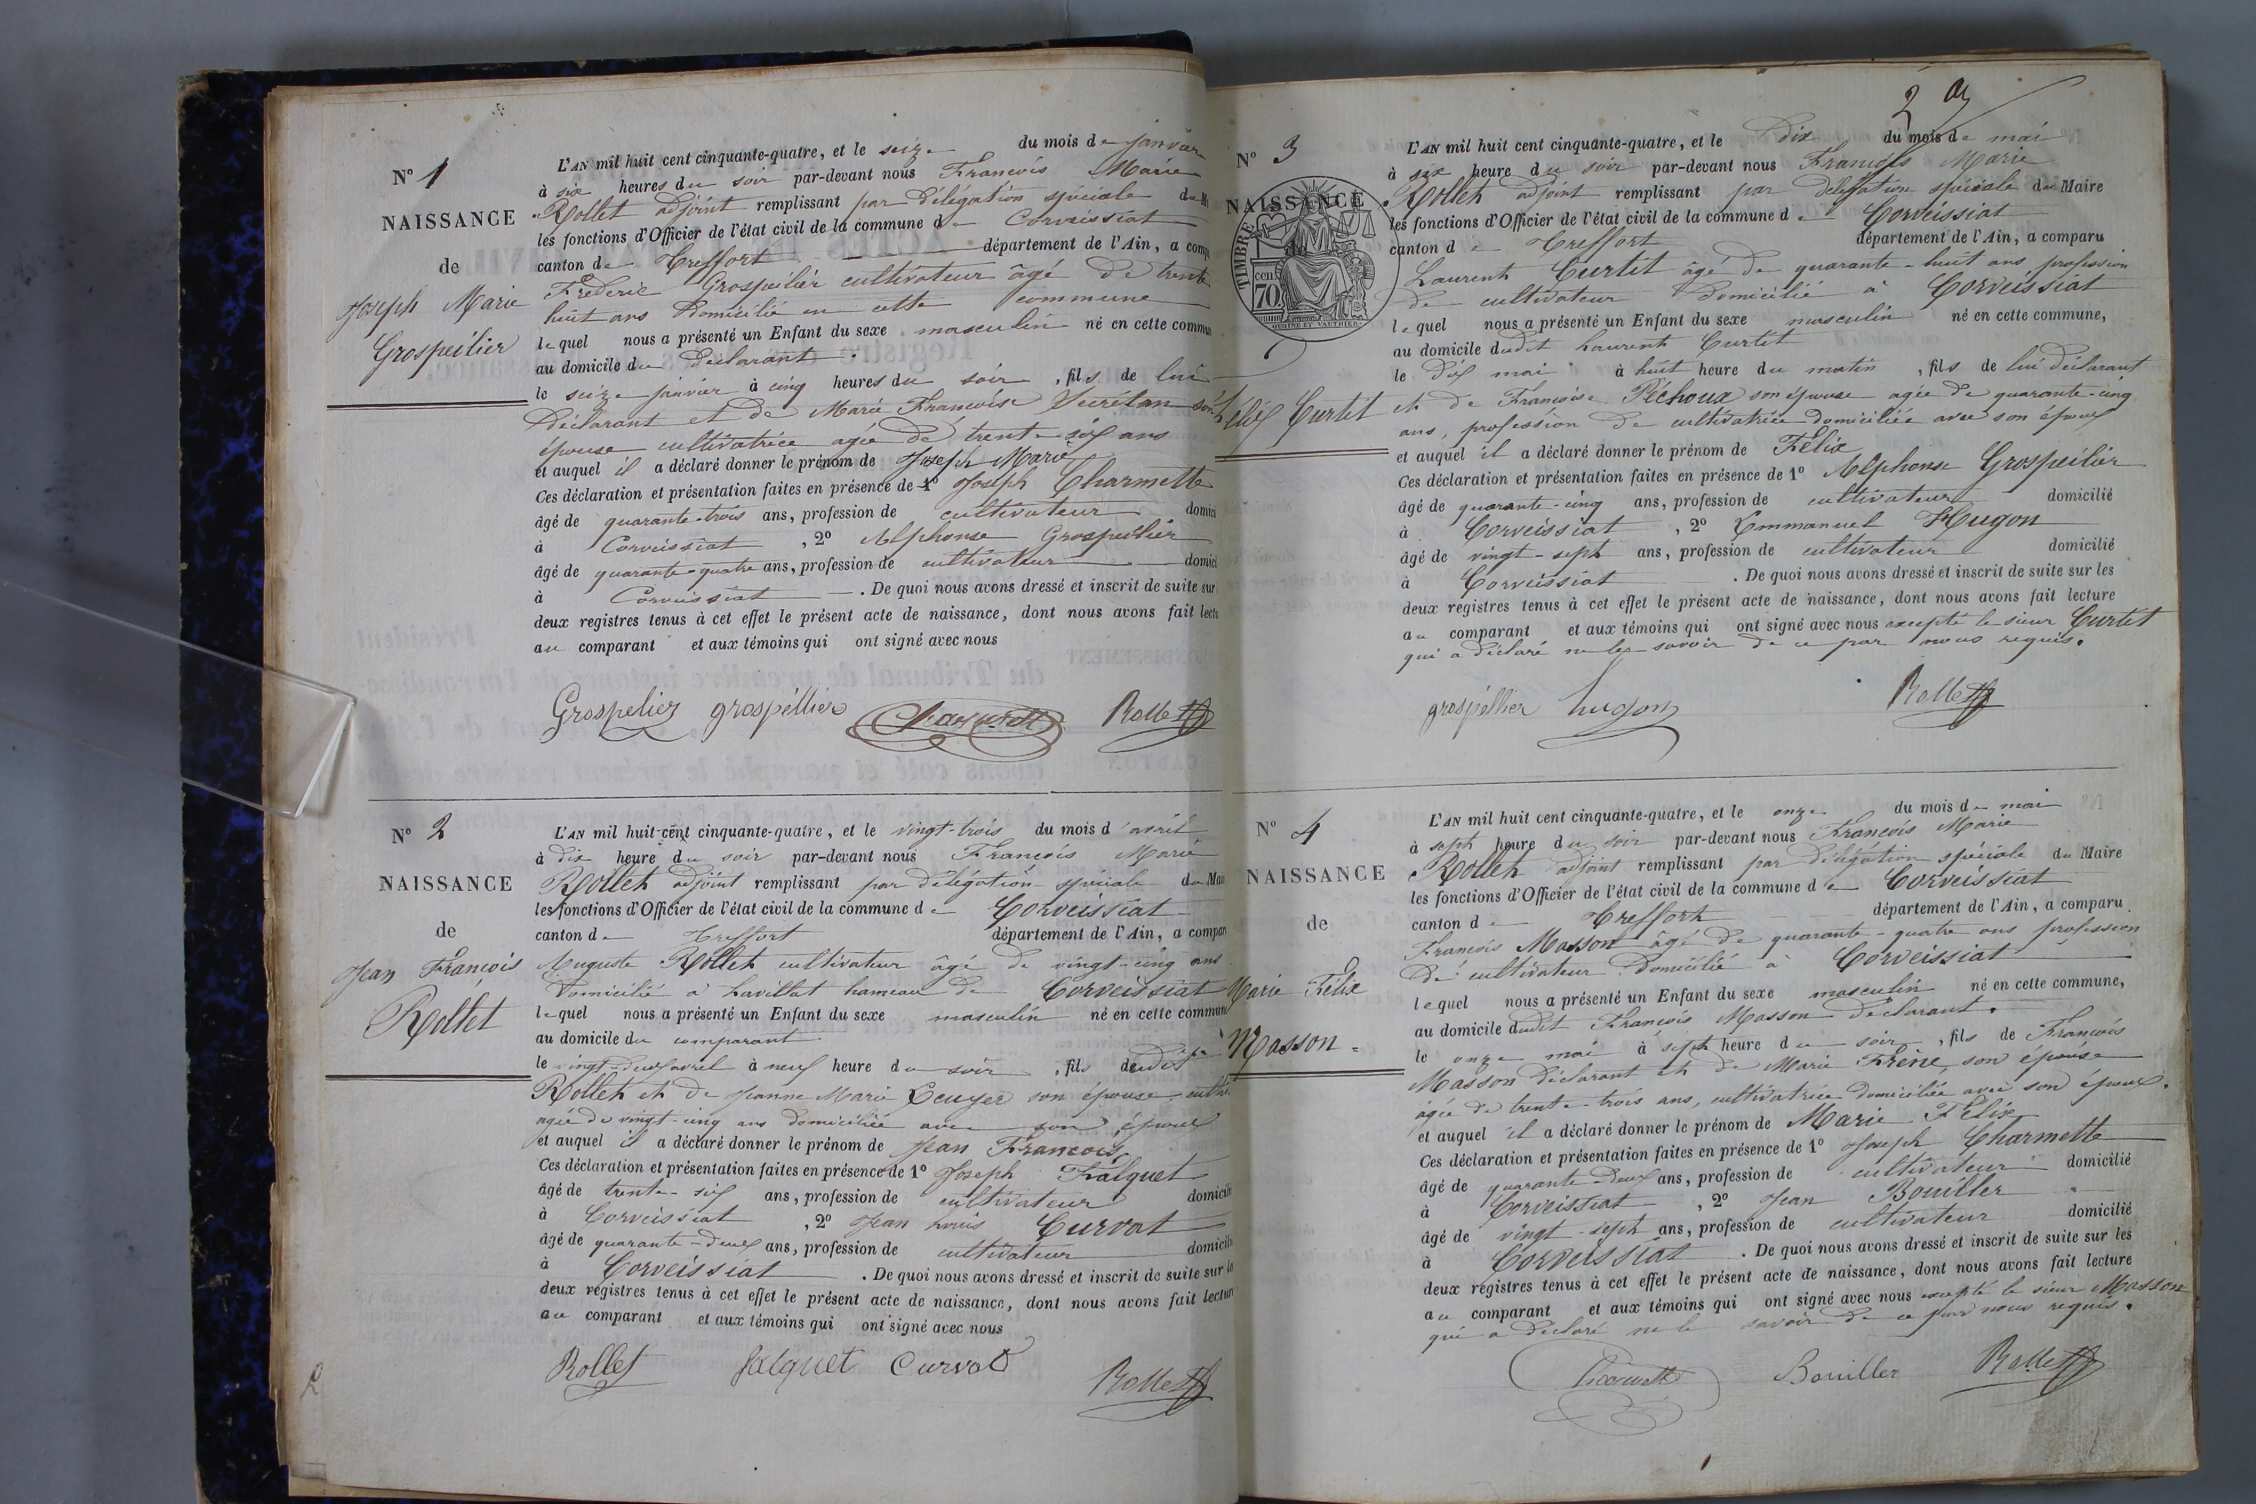 N° 1
NAISSANCE
de
Joseph Marie
Grospeilier
L'AN mil huit cent cinquante-quatre, et le seize du mois de janvier
à six heures du soir par-devant nous François Marie
Rollet adjoint remplissant par délégation spéciale du M
les fonctions d'Officier de l'état civil de la commune de Corveissiat
canton de Treffort département de l'Ain, a comp
Frederic Grospeilier cultivateur âgé de trente
huit ans domicilié en cette commune
lequel nous a présenté un Enfant du sexe masculin né en cette commu
au domicile du déclarant.
le seize janvier à cinq heures du soir, fils de lui
déclarant et de Marie Françoise Secrétan son
épouse cultivatrice agée de trente six ans
et auquel il a déclaré donner le prénom de Joseph Marie
Ces déclaration et présentation faites en présence de 1° Joseph Charmette
âgé de quarante-trois ans, profession de cultivateur domici
à Corveissiat, 2° Alphonse Grospeilier
âgé de quarante-quatre ans, profession de cultivateur domici
à Corveissiat. De quoi nous avons dressé et inscrit de suite sur
deux registres tenus à cet effet le présent acte de naissance, dont nous avons fait lectu
au comparant et aux témoins qui ont signé avec nous
Grospelier grospéllier Charmette Rollet
N° 2
NAISSANCE
de
Jean François
Rollet
L'AN mil huit cent cinquante-quatre, et le vingt-trois du mois d'avril
à dix heure du soir par-devant nous François Marie
Rollet adjoint remplissant par délégation spéciale du Mai
les fonctions d'Officier de l'état civil de la commune de Corveissiat
canton de Treffort département de l'Ain, a compar
Auguste Rollet cultivateur âgé de vingt-cinq ans
domicilié à Lavillat hameau de Corveissiat
lequel nous a présenté un Enfant du sexe masculin né en cette commun
au domicile du comparant
le vingt-deux avril à neuf heure du soir, fils dudit
Rollet et de Jeanne Marie Ecuyer son épouse
agée de vingt-cinq ans domiciliée avec son époux
et auquel il a déclaré donner le prénom de Jean François
Ces déclaration et présentation faites en présence de 1° Joseph Falquet
âgé de trente-six ans, profession de cultivateur domicili
à Corveissiat, 2° Jean Louis Curvat
âgé de quarante-deux ans, profession de cultivateur domicili
à Corveissiat. De quoi nous avons dressé et inscrit de suite sur
deux registres tenus à cet effet le présent acte de naissance, dont nous avons fait lectur
au comparant et aux témoins qui ont signé avec nous
Rollet falquet Curvat Rollet
2
N° 3
NAISSANCE
TIMBRE
70 cen
Félix Curtit
L'AN mil huit cent cinquante-quatre, et le dix du mois de mai
à six heure du soir par-devant nous François Marie
Rollet adjoint remplissant par délégation spéciale du Maire
les fonctions d'Officier de l'état civil de la commune de Corveissiat
canton de Treffort département de l'Ain, a comparu
Laurent Curtit âgé de quarante-huit ans profession
de cultivateur domicilié à Corveissiat
lequel nous a présenté un Enfant du sexe masculin né en cette commune,
au domicile dudit Laurent Curtit
le dix mai à huit heure du matin, fils de lui déclarant
et de Françoise Péchoux son épouse agée de quarante-cinq
ans, profession de cultivatrice domiciliée avec son époux
et auquel il a déclaré donner le prénom de Félix
Ces déclaration et présentation faites en présence de 1° Alphonse Grospeilier
âgé de quarante-cinq ans, profession de cultivateur domicilié
à Corveissiat, 2° Emmanuel Hugon
âgé de vingt-sept ans, profession de cultivateur domicilié
à Corveissiat. De quoi nous avons dressé et inscrit de suite sur les
deux registres tenus à cet effet le présent acte de naissance, dont nous avons fait lecture
au comparant et aux témoins qui ont signé avec nous excepté le sieur Curtit
qui a déclaré ne le savoir de ce par nous requis.
grospéllier hugon Rollet
N° 4
NAISSANCE
de
Marie Félix
Masson
L'AN mil huit cent cinquante-quatre, et le onze du mois de mai
à sept heure du soir par-devant nous François Marie
Rollet adjoint remplissant par délégation spéciale du Maire
les fonctions d'Officier de l'état civil de la commune de Corveissiat
canton de Treffort département de l'Ain, a comparu
François Masson âgé de quarante-quatre ans profession
de cultivateur domicilié à Corveissiat
lequel nous a présenté un Enfant du sexe masculin né en cette commune,
au domicile dudit François Masson déclarant.
le onze mai à sept heure du soir, fils de François
Masson déclarant et de Marie Frène son épouse
agée de trente-trois ans, cultivatrice domiciliée avec son époux.
et auquel il a déclaré donner le prénom de Marie Félix
Ces déclaration et présentation faites en présence de 1° Joseph Charmette
âgé de quarante-deux ans, profession de cultivateur domicilié
à Corveissiat, 2° Jean Bouiller
âgé de vingt-sept ans, profession de cultivateur domicilié
à Corveissiat. De quoi nous avons dressé et inscrit de suite sur les
deux registres tenus à cet effet le présent acte de naissance, dont nous avons fait lecture
au comparant et aux témoins qui ont signé avec nous excepté le sieur Masson
qui a déclaré ne le savoir de ce par nous requis.
Bouiller Rollet